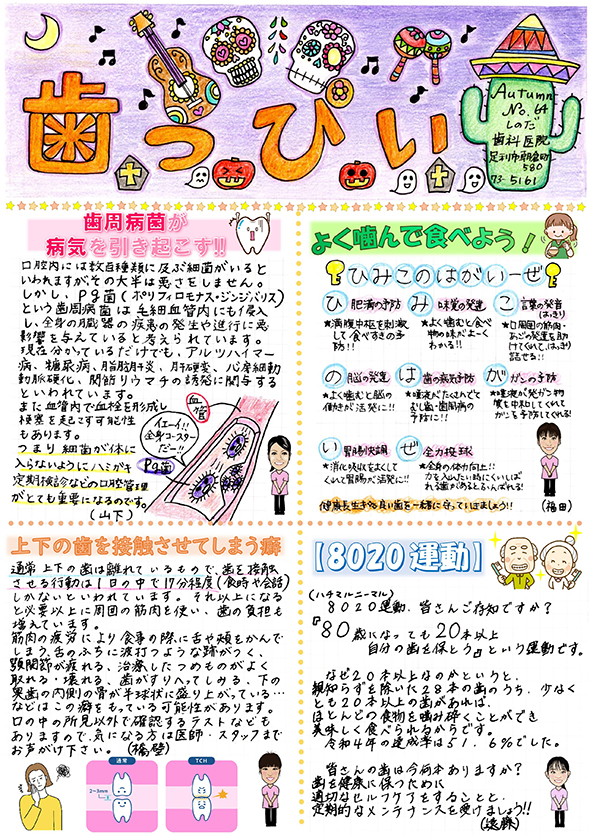 歯っぴい
Autumn
No.64
しのだ
歯科医院
足利市朝倉町
580
73-5161
歯周病菌が
病気を引き起こす!!
口腔内には数百種類に及ぶ細菌がいると
いわれますがその大半は悪さをしません。
しかし、Pg菌(ポリフィロモナス・ジンジバリス)
という歯周病菌は毛細血管内にも侵入
し、全身の臓器の疾患の発生や進行に悪
影響を与えていると考えられています。
現在分かっているだけでも、アルツハイマー
病、糖尿病、脂肪肝、肝硬変、心房細動
動脈硬化、関節リウマチの誘発に関与する
といわれています。
また血管内で血栓を形成し
梗塞を起こす可能性
もあります。
つまり細菌が体に
入らないようにハミガキ
定期検診などの口腔管理
がとても重要になるのです。
(山下)
血管
イエーイ!!
全身コースター
だー!!
Pg菌
よく噛んで食べよう!
ひみこのはがいーぜ
ひ 肥満の予防
★満腹中枢を刺激
して食べすぎの予
防!!
み 味覚の発達
★よく噛むと食べ
物の味がよーく
わかる!!
こ 言葉の発音
はっきり
★口周囲の筋肉・
あごの発達を助
けてくれて、はっきり
話せる!!
の 脳の発達
★よく噛むと脳の
働きが活発に!!
は 歯の病気予防
★唾液がたくさんでて
むし歯・歯周病の
予防に!!
が がんの予防
★唾液が発がん物
質を中和してくれて
がんを予防してくれる!
い 胃腸快調
★消化吸収をよくして
くれて胃腸が活発に!!
ぜ 全力投球
★全身の体力向上!!
力を入れたい時にくいしば
れる歯があるとふんばれる!
健康長生き♡良い歯を一緒に守っていきましょう!!
(福田)
上下の歯を接触させてしまう癖
通常上下の歯は離れているもので、歯を接触
させる行動は1日の中で17分程度(食時や会話)
しかないといわれています。それ以上になる
と必要以上に周囲の筋肉を使い、歯の負担も
増えています。
筋肉の疲労により食事の際に舌や頬をかんで
しまう、舌のふちに波打つような跡がつく、
顎関節が疲れる、治療したつめものがよく
取れる・壊れる、歯がすりへってしみる、下の
奥歯の内側の骨が半球状に盛り上がっている…
などはこの癖をもっている可能性があります。
口の中の所見以外で確認するテストなども
ありますので、気になる方は医師・スタッフまで
お声がけ下さい。
通常
TCH
2~3mm
【8020運動】
(ハチマルニーマル)
8020運動、皆さんご存知ですか?
『80歳になっても20本以上
自分の歯を保とう』という運動です。
なぜ20本以上なのかというと、
親知らずを除いた28本の歯のうち、少なく
とも20本以上の歯があれば、
ほとんどの食物を噛み砕くことができ
美味しく食べられるからです。
令和4年の達成率は51.6%でした。
皆さんの歯は今何本ありますか?
歯を健康に保つために
適切なセルフケアをすることと、
定期的なメンテナンスを受けましょう!!
(遠藤)